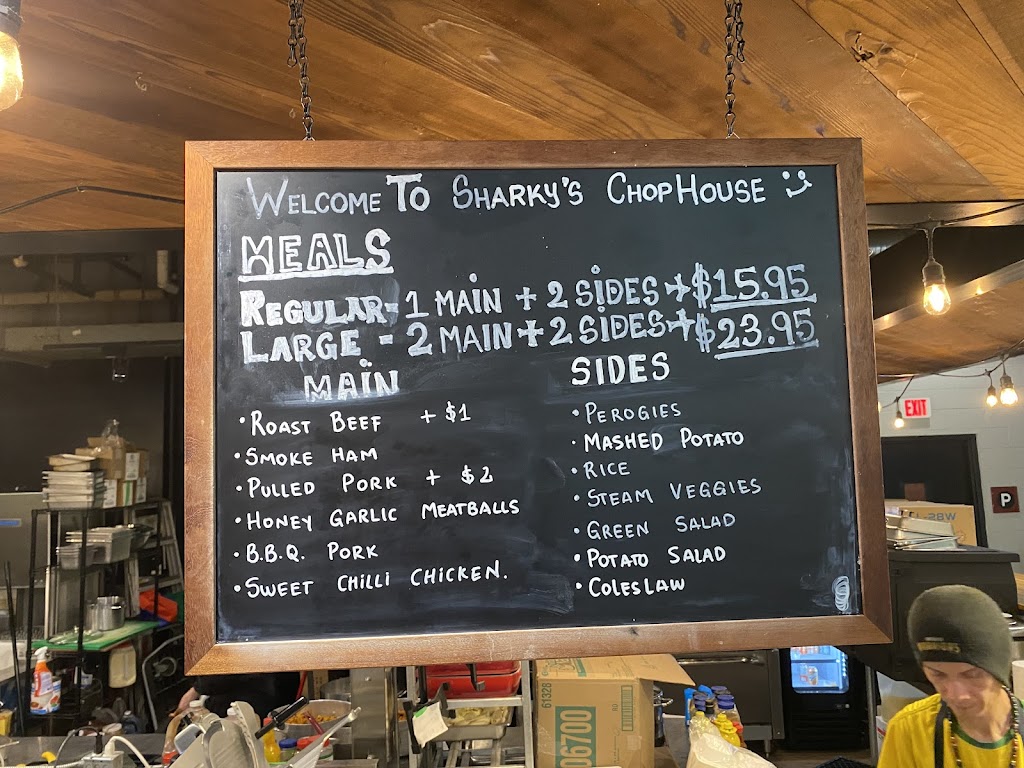 WELCOME TO SHARKY'S CHOPHOUSE
MEALS
REGULAR - 1 MAIN + 2 SIDES → $15.95
LARGE - 2 MAIN + 2 SIDES → $23.95
MAIN
• ROAST BEEF + $1
• SMOKE HAM
• PULLED PORK + $2
• HONEY GARLIC MEATBALLS
• B.B.Q. PORK
• SWEET CHILLI CHICKEN.
SIDES
• PEROGIES
• MASHED POTATO
• RICE
• STEAM VEGGIES
• GREEN SALAD
• POTATO SALAD
• COLESLAW
EXIT
P
61328
06700